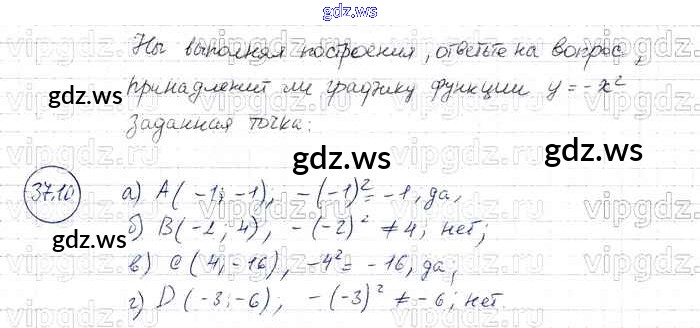 gdz.ws
Ны выполняя построения, ответьте на вопрос,
принадлежит ли графику функции y = -x²
gdz.ws
заданная точка:
gdz.ws
gdz.ws
37.10
а) A(-1; -1), -(-1)² = -1, да,
б) B(-2; 4), -(-2)² ≠ 4; нет;
gdz.ws
в) C(4; -16), -4² = -16, да;
gdz.ws
г) D(-3; -6); -(-3)² ≠ -6; нет.
gdz.ws